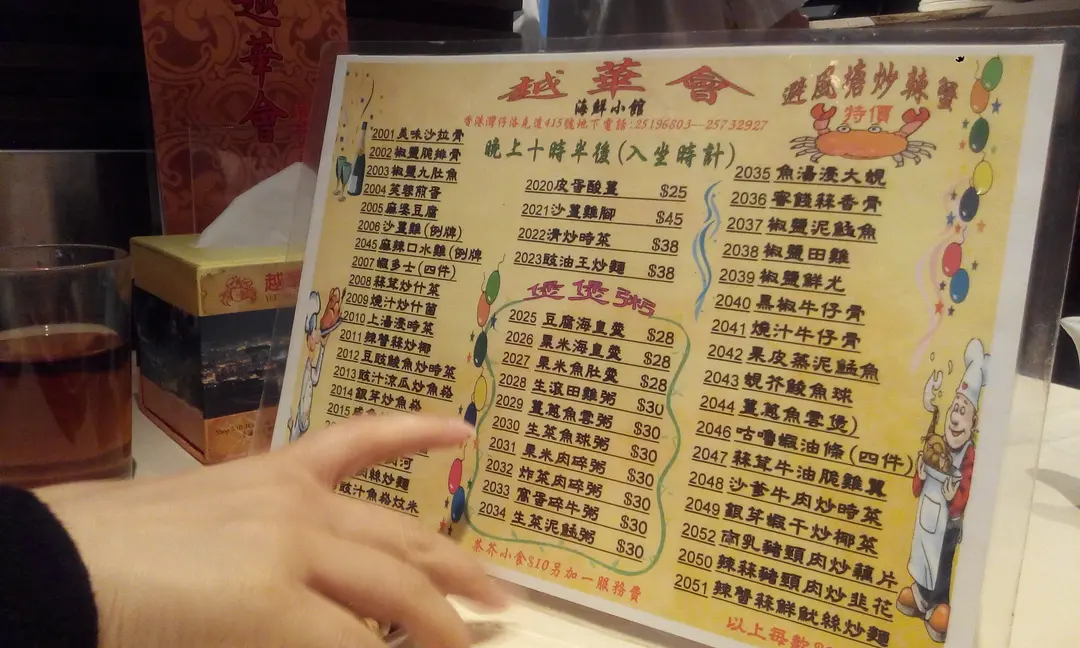 越華會
越華會
海鮮小館
香港灣仔洛克道415號地下電話:25196803--25732927
避風塘炒辣蟹
特價
晚上十時半後(入坐時計)
2001 美味沙拉骨
2002 椒鹽脆排骨
2003 椒鹽九肚魚
2004 芙蓉煎蛋
2005 麻婆豆腐
2006 沙薑雞(例牌)
2045 麻辣口水雞(例牌
2007 蝦多士(四件)
2008 蒜茸炒什菜
2009 燒汁炒什菌
2010 上湯浸時菜
2011 辣醬蒜炒椰
2012 豆豉鯪魚炒時菜
2013 豉汁涼瓜炒魚崧
2014 銀芽炒魚崧
2015
肉絲炒麵
豉汁魚崧炆米
2020 皮蛋酸薑 $25
2021 沙薑雞腳 $45
2022 清炒時菜 $38
2023 豉油王炒麵 $38
煲煲粥
2025 豆腐海皇羹 $28
2026 粟米海皇羹 $28
2027 粟米魚肚羹 $28
2028 生滾田雞粥 $30
2029 薑蔥魚雲粥 $30
2030 生菜魚球粥 $30
2031 粟米肉碎粥 $30
2032 炸菜肉碎粥 $30
2033 窩蛋碎牛粥 $30
2034 生菜泥鯭粥 $30
茶芥小食$10另加一服務費
2035 魚湯浸大蜆
2036 蜜餞蒜香骨
2037 椒鹽泥鯭魚
2038 椒鹽田雞
2039 椒鹽鮮尤
2040 黑椒牛仔骨
2041 燒汁牛仔骨
2042 果皮蒸泥鯭魚
2043 蜆芥鯪魚球
2044 薑蔥魚雲煲)
2046 咕嚕蝦油條(四件)
2047 蒜茸牛油脆雞翼
2048 沙爹牛肉炒時菜
2049 銀芽蝦干炒椰菜
2052 南乳豬頸肉炒藕片
2050 辣蒜豬頸肉炒韭花
2051 辣醬蒜鮮魷絲炒麵
以上每款